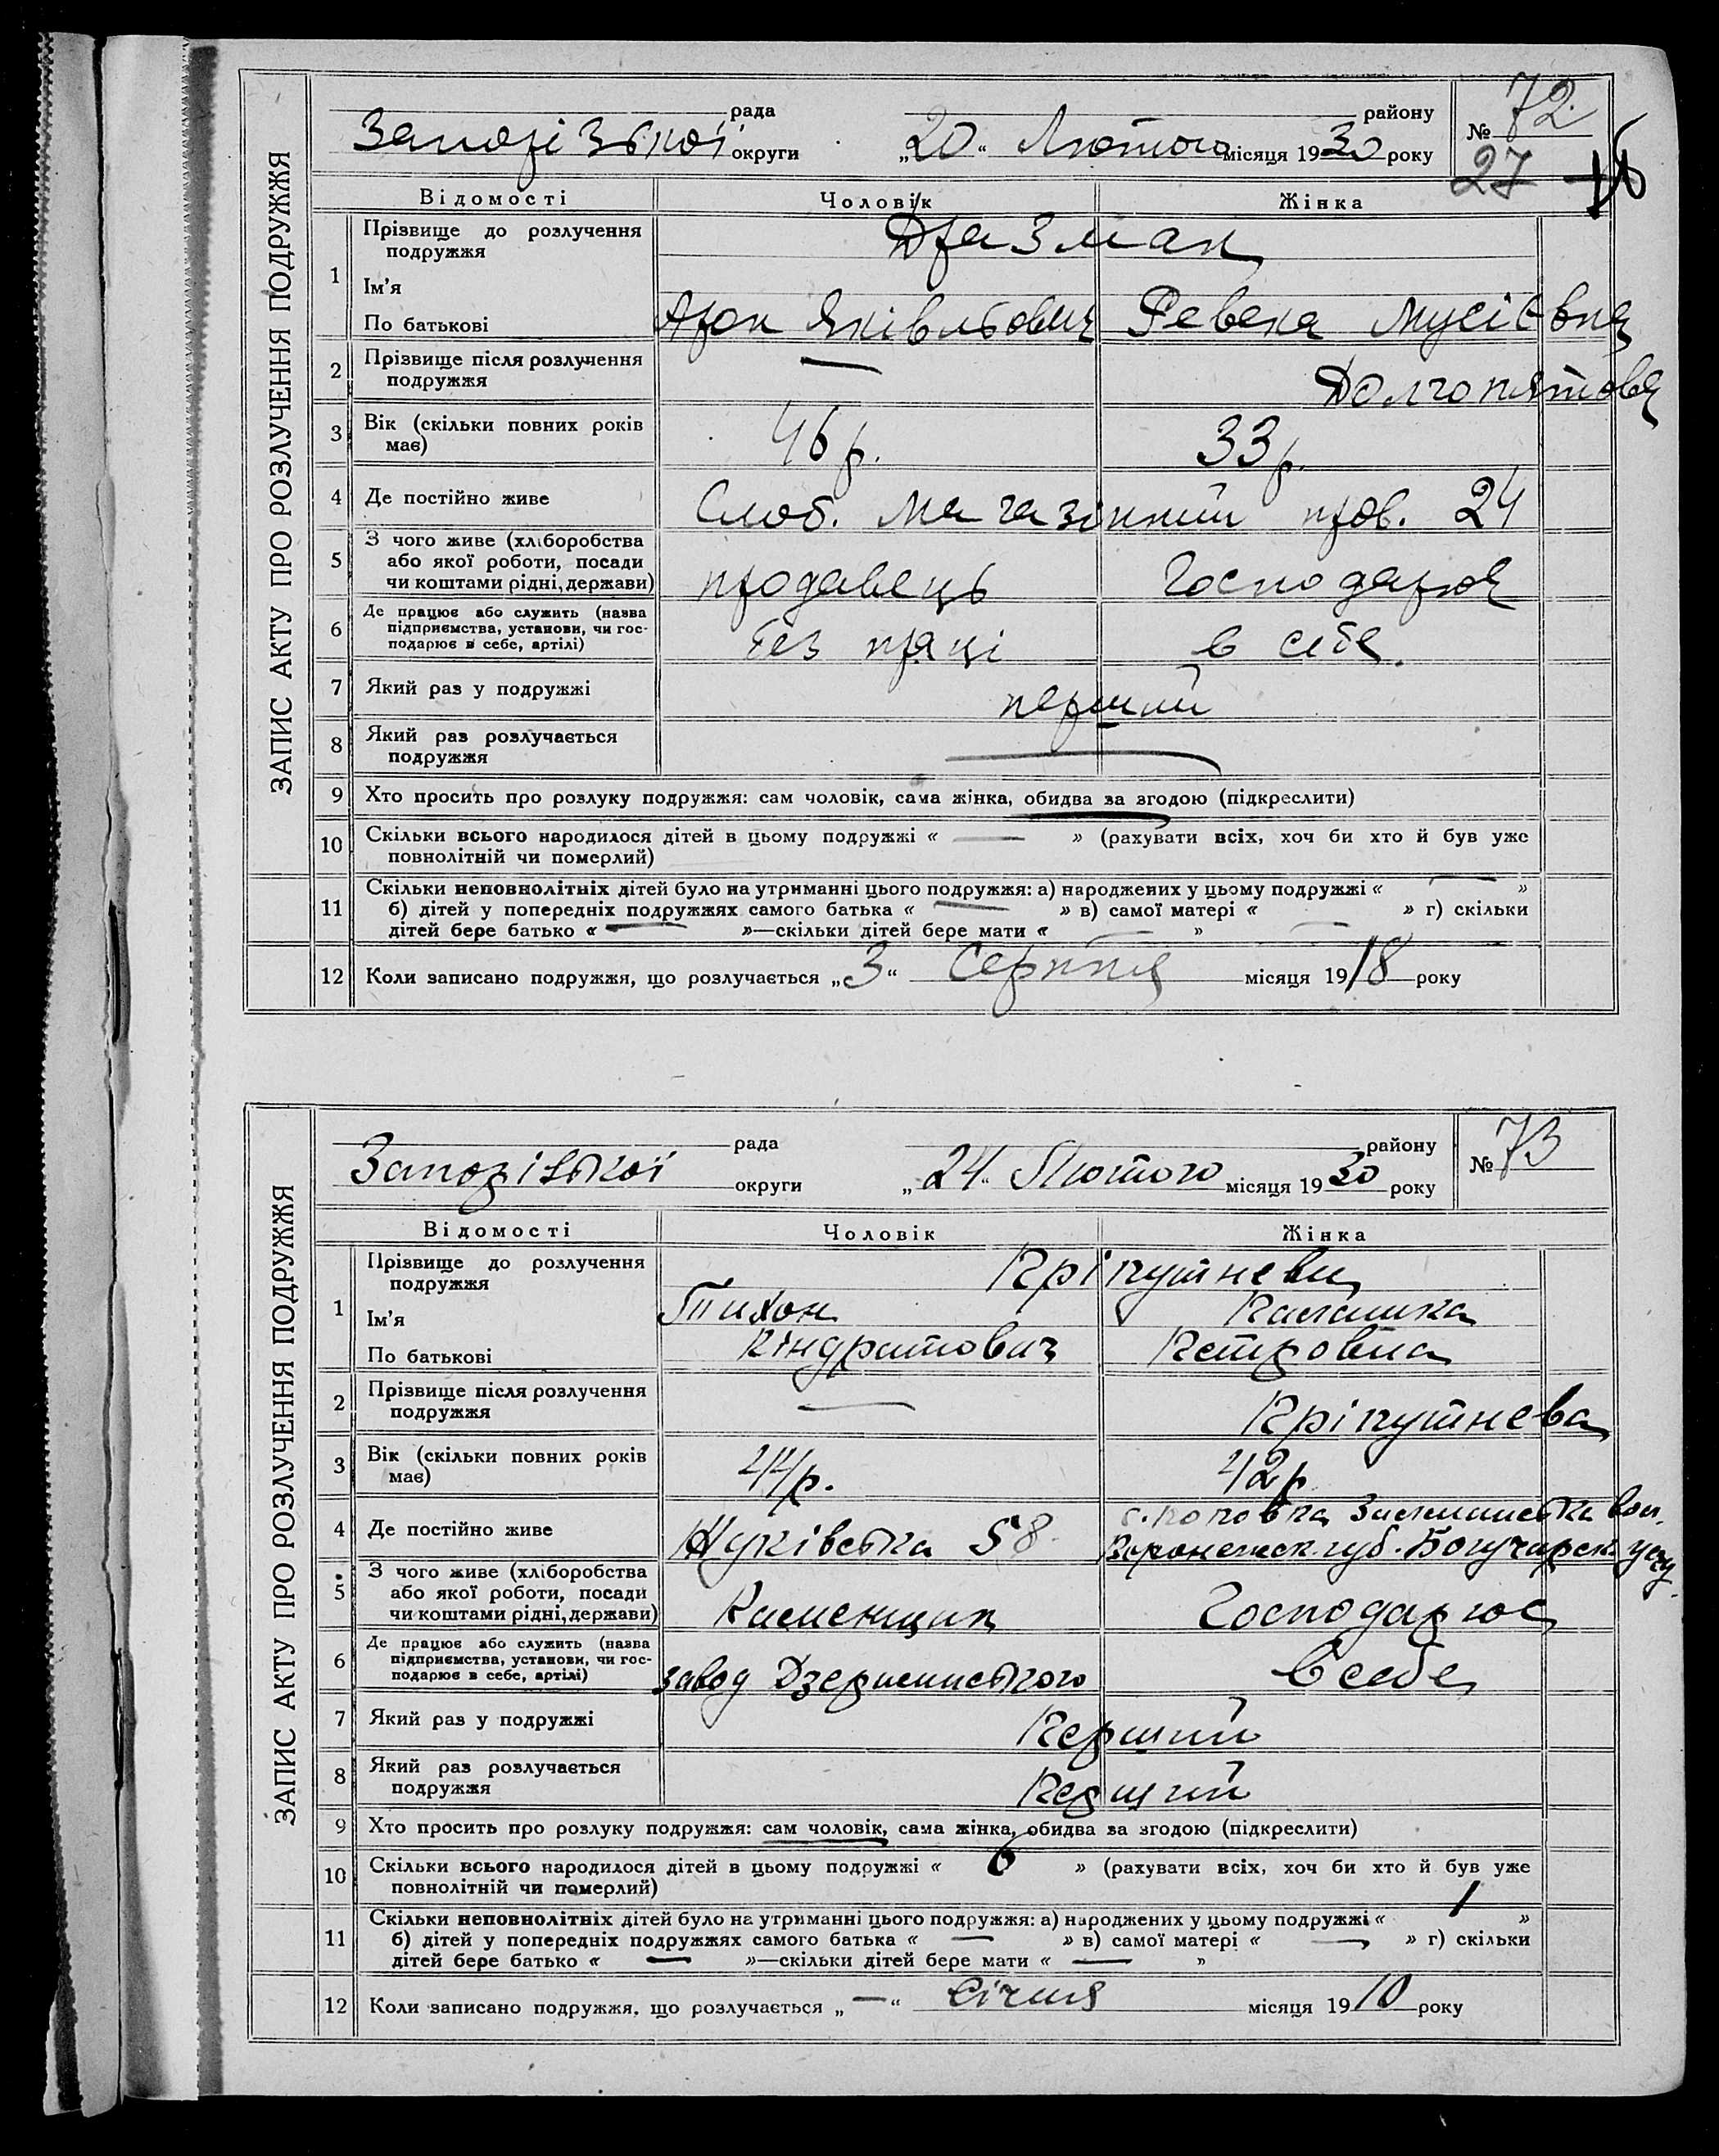 ЗАПИС АКТУ ПРО РОЗЛУЧЕННЯ ПОДРУЖЖЯ
рада району
№ 72
Запорізької округи „20“ Лютого місяця 1930 року
27
Відомості Чоловік Жінка
1 Прізвище до розлучення подружжя Дразман
Ім'я
По батькові Арон Яківльович Ревека Мусієвна
2 Прізвище після розлучення подружжя — Долгопятова
3 Вік (скільки повних років має) 46 р. 33 р.
4 Де постійно живе Слоб. Магазінний пров. 24
5 З чого живе (хліборобства або якої роботи, посади чи коштами рідні, держави) продавець Господарює
6 Де працює або служить (назва підприємства, установи, чи господарює в себе, артілі) без праці в себе.
7 Який раз у подружжі перший
8 Який раз розлучається подружжя —
9 Хто просить про розлуку подружжя: сам чоловік, сама жінка, обидва за згодою (підкреслити)
10 Скільки всього народилося дітей в цьому подружжі « — » (рахувати всіх, хоч би хто й був уже
повнолітній чи померлий)
11 Скільки неповнолітніх дітей було на утриманні цього подружжя: а) народжених у цьому подружжі « — »
б) дітей у попередніх подружжях самого батька « — » в) самої матері « — » г) скільки
дітей бере батько « — »—скільки дітей бере мати « — »
12 Коли записано подружжя, що розлучається „3“ Серпня місяця 1918 року
ЗАПИС АКТУ ПРО РОЗЛУЧЕННЯ ПОДРУЖЖЯ
рада району
№ 73
Запорізької округи „24“ Лютого місяця 1930 року
Відомості Чоловік Жінка
1 Прізвище до розлучення подружжя Кріпутневи
Ім'я Тихон
По батькові Кіндратович Петровна
2 Прізвище після розлучення подружжя — Кріпутнева
3 Вік (скільки повних років має) 44 р. 42 р
4 Де постійно живе Жуківська 58 с. Поповка вол.
Воронежск. губ. Богучарск. уезд.
5 З чого живе (хліборобства або якої роботи, посади чи коштами рідні, держави) Каменщик Господарює
6 Де працює або служить (назва підприємства, установи, чи господарює в себе, артілі) завод Дзержинського в себе
7 Який раз у подружжі Перший
8 Який раз розлучається подружжя Перший
9 Хто просить про розлуку подружжя: сам чоловік, сама жінка, обидва за згодою (підкреслити)
10 Скільки всього народилося дітей в цьому подружжі « 6 » (рахувати всіх, хоч би хто й був уже
повнолітній чи померлий)
11 Скільки неповнолітніх дітей було на утриманні цього подружжя: а) народжених у цьому подружжі « 1 »
б) дітей у попередніх подружжях самого батька « — » в) самої матері « — » г) скільки
дітей бере батько « — »—скільки дітей бере мати « — »
12 Коли записано подружжя, що розлучається „—“ Січня місяця 1910 року